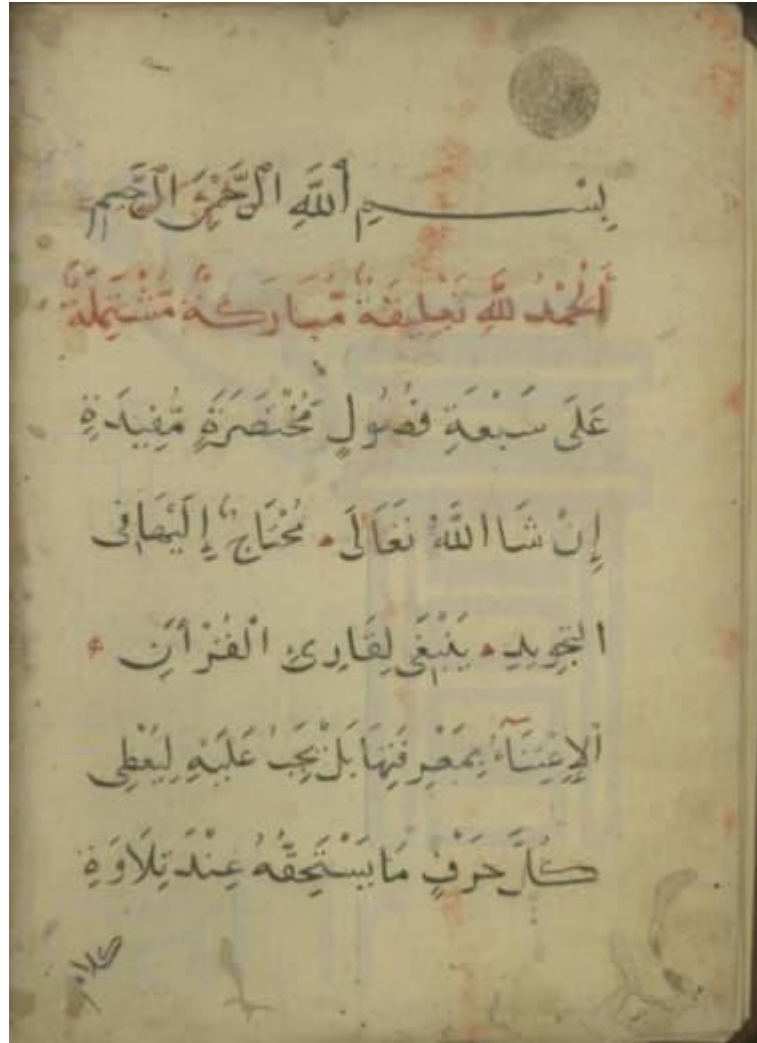 بِسْمِ اللَّهِ الرَّحْمٰنِ الرَّحِيمِ
أَلْحَمْدُ لِلَّهِ تَعْلِيقَةٌ مُّبَارَكَةٌ مُّشْتَمِلَةٌ
عَلَى سَبْعَةِ فُصُولٍ مُخْتَصَرَةٍ مُّفِيدَةٍ
إِنْ شَا اللَّهُ تَعَالَى مُحْتَاجٌ إِلَيْهَا فِى
التَّجْوِيدِ يَنْبَغِى لِقَارِئِ الْقُرْأَنِ
الْإِعْتِنَآءُ بِمَعْرِفَتِهَا بَلْ يَجِبُ عَلَيْهِ لِيُعْطِى
كُلَّ حَرْفٍ مَا يَسْتَحِقُّهُ عِنْدَ تِلَاوَةِ
كلام